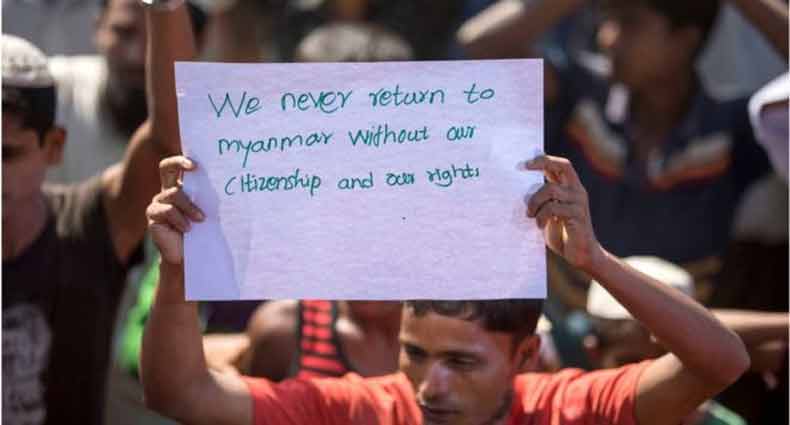 We never return to
myanmar without our
citizenship and our rights